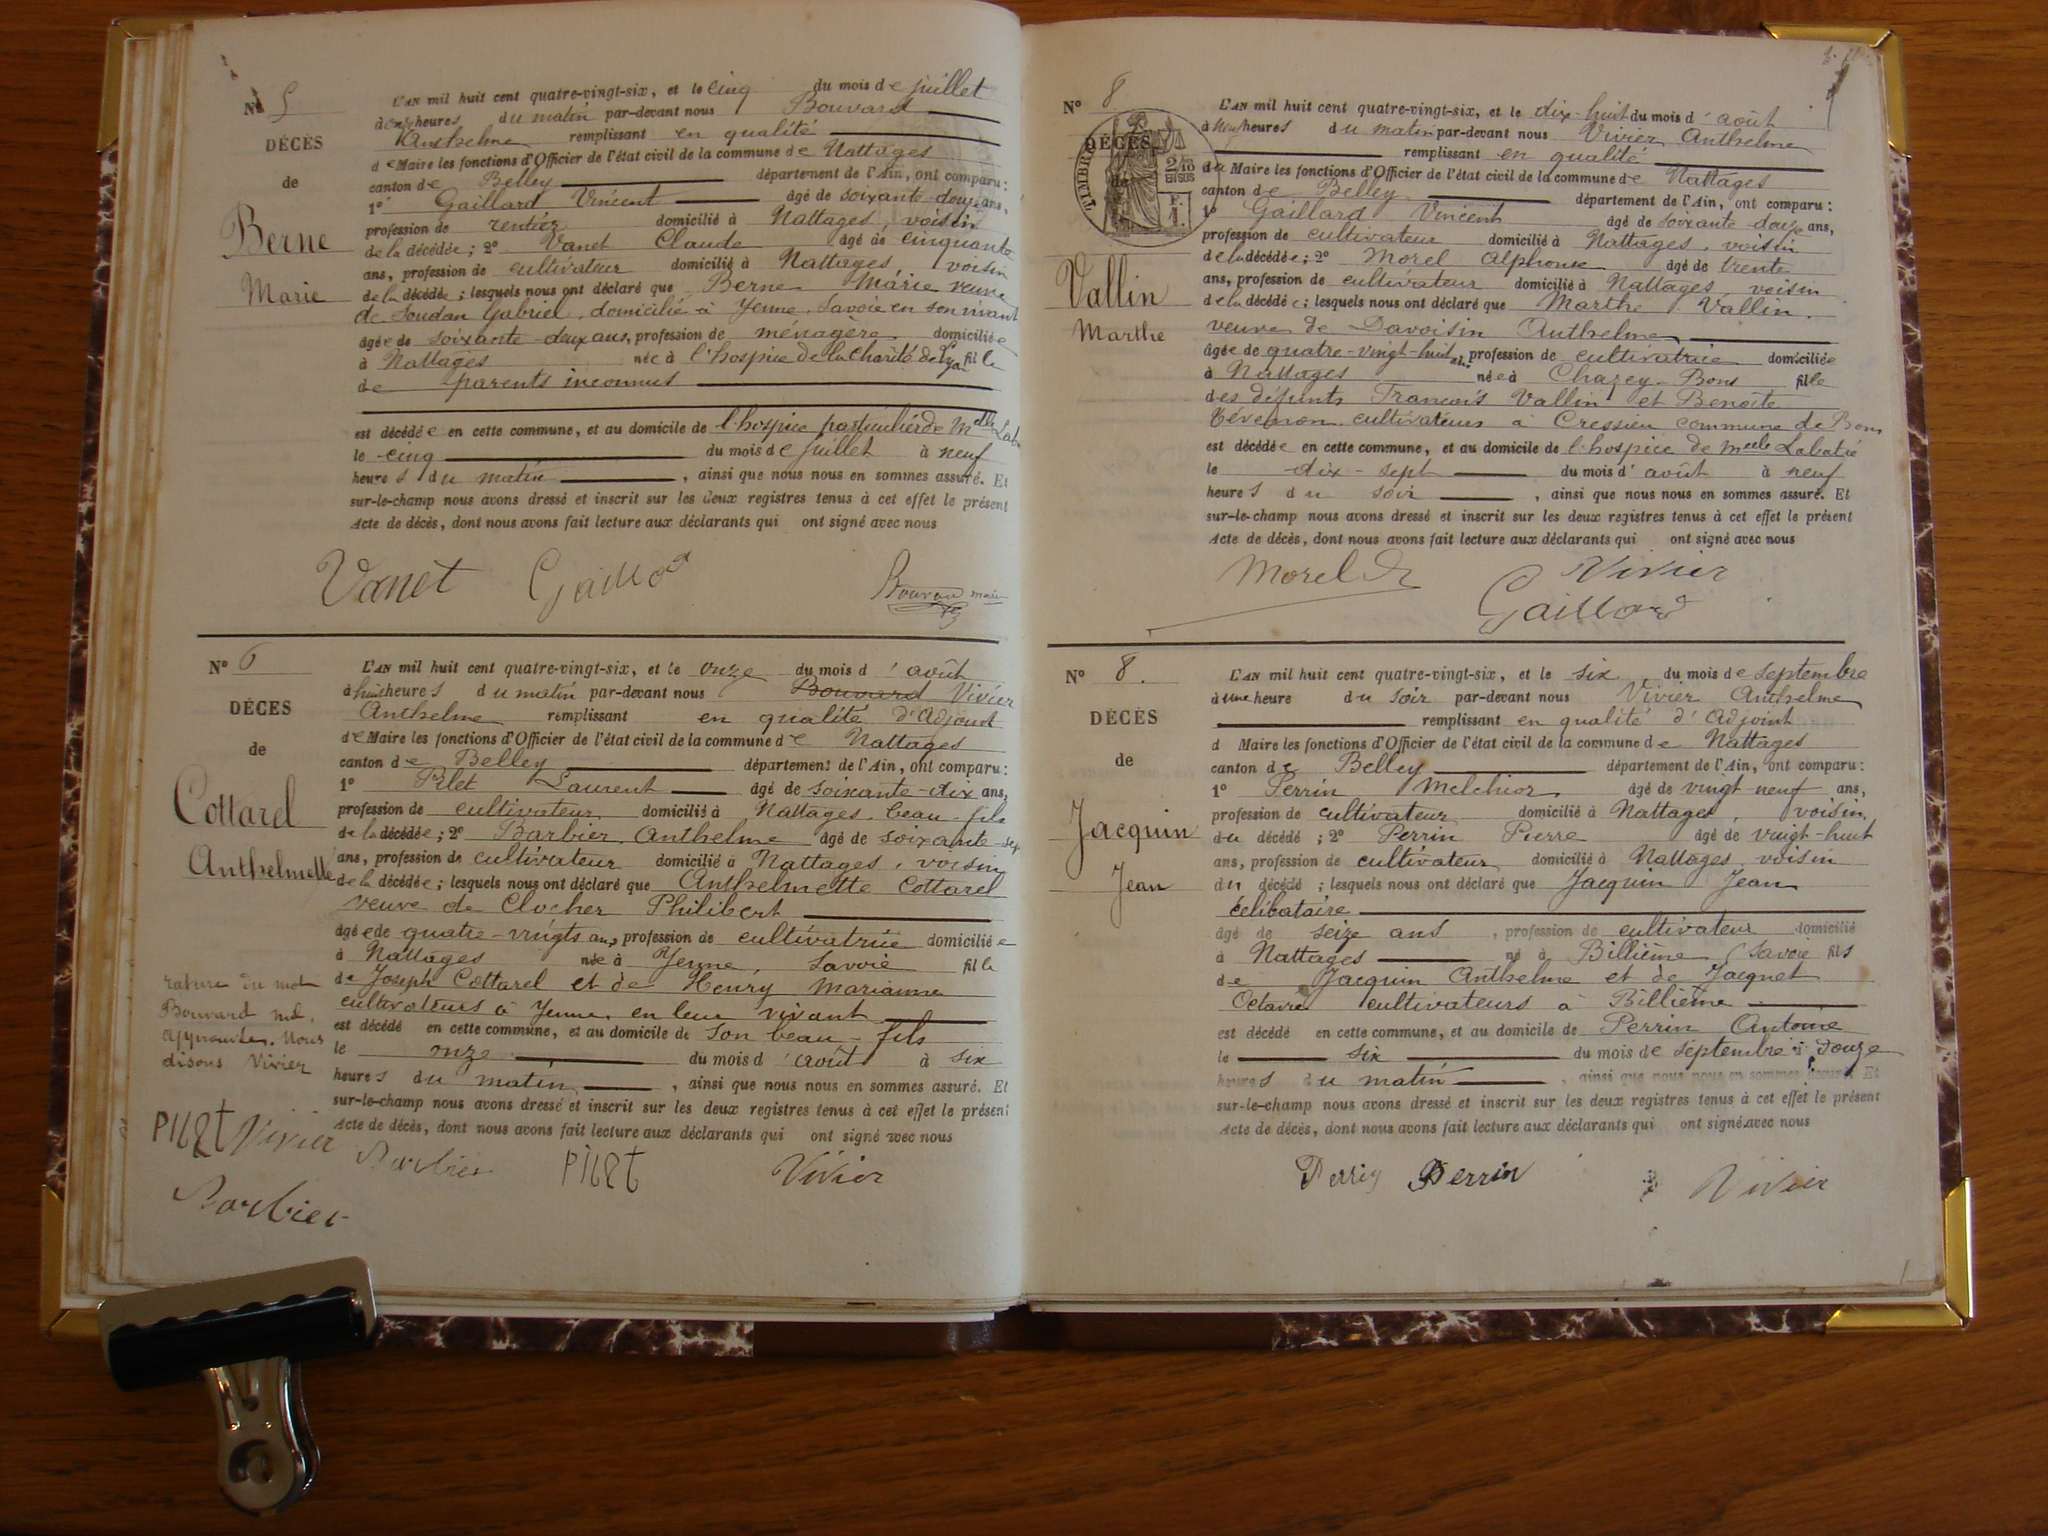 N° 5
DÉCÈS
de
Berne
Marie
L'AN mil huit cent quatre-vingt-six, et le cinq du mois de juillet
à onze heures du matin par-devant nous Bouvard
Anthelme remplissant en qualité
de Maire les fonctions d'Officier de l'état civil de la commune de Nattages
canton de Belley département de l'Ain, ont comparu :
1° Gaillard Vincent âgé de soixante-douze ans,
profession de rentier domicilié à Nattages, voisin
de la décédée ; 2° Vanet Claude âgé de cinquante
ans, profession de cultivateur domicilié à Nattages, voisin
de la décédée ; lesquels nous ont déclaré que Berne Marie veuve
de Soudan Gabriel, domicilié à Yenne, Savoie en son vivant
âgée de soixante-deux ans, profession de ménagère domiciliée
à Nattages née à l'hospice de la Charité de Lyon fille
de parents inconnus
est décédée en cette commune, et au domicile de l'hospice particulier de Melle
le cinq du mois de juillet à neuf
heures du matin, ainsi que nous nous en sommes assuré. Et
sur-le-champ nous avons dressé et inscrit sur les deux registres tenus à cet effet le présent
Acte de décès, dont nous avons fait lecture aux déclarants qui ont signé avec nous
Vanet Gaillard Bouvard maire
N° 6
DÉCES
de
Cottarel
Anthelmette
L'AN mil huit cent quatre-vingt-six, et le onze du mois d'août
à huit heures du matin par-devant nous Bouvard Vivier
Anthelme remplissant en qualité d'Adjoint
de Maire les fonctions d'Officier de l'état civil de la commune de Nattages
canton de Belley département de l'Ain, ont comparu :
1° Pilet Laurent âgé de soixante-dix ans,
profession de cultivateur domicilié à Nattages, beau-fils
de la décédée ; 2° Barbier Anthelme âgé de soixante-sept
ans, profession de cultivateur domicilié à Nattages, voisin
de la décédée ; lesquels nous ont déclaré que Anthelmette Cottarel
veuve de Clocher Philibert
âgée de quatre-vingts ans, profession de cultivatrice domiciliée
à Nattages née à Yenne, Savoie fille
de Joseph Cottarel et de Henry Marianne
cultivateurs à Yenne, en leur vivant
est décédé en cette commune, et au domicile de son beau-fils
le onze du mois d'août à six
heures du matin, ainsi que nous nous en sommes assuré. Et
sur-le-champ nous avons dressé et inscrit sur les deux registres tenus à cet effet le présent
Acte de décès, dont nous avons fait lecture aux déclarants qui ont signé avec nous
rature du mot
Bouvard nul,
approuvée. Nous
disons Vivier
Pilet Vivier
Barbier Pilet Vivier
Barbier
N° 8
DÉCÈS
de
TIMBRE
2/10 EN SUS
F. 1.
Vallin
Marthe
L'AN mil huit cent quatre-vingt-six, et le dix-huit du mois d'août
à neuf heures du matin par-devant nous Vivier Anthelme
remplissant en qualité
de Maire les fonctions d'Officier de l'état civil de la commune de Nattages
canton de Belley département de l'Ain, ont comparu :
1° Gaillard Vincent âgé de soixante douze ans,
profession de cultivateur domicilié à Nattages, voisin
de la décédée ; 2° Morel Alphonse âgé de trente
ans, profession de cultivateur domicilié à Nattages, voisin
de la décédée ; lesquels nous ont déclaré que Marthe Vallin,
veuve de Davoisin Anthelme
âgée de quatre-vingt-huit ans, profession de cultivatrice domiciliée
à Nattages née à Chazey-Bons fille
des défunts François Vallin et Benoîte
Tévenon cultivateurs à Cressieu commune de Bons
est décédée en cette commune, et au domicile de l'hospice de Melle Labatie
le dix-sept du mois d'août à neuf
heures du soir, ainsi que nous nous en sommes assuré. Et
sur-le-champ nous avons dressé et inscrit sur les deux registres tenus à cet effet le présent
Acte de décès, dont nous avons fait lecture aux déclarants qui ont signé avec nous
Morel Vivier
Gaillard
N° 8.
DÉCÈS
de
Jacquin
Jean
L'AN mil huit cent quatre-vingt-six, et le six du mois de septembre
à une heure du soir par-devant nous Vivier Anthelme
remplissant en qualité d'Adjoint
d Maire les fonctions d'Officier de l'état civil de la commune de Nattages
canton de Belley département de l'Ain, ont comparu :
1° Perrin Melchior âgé de vingt-neuf ans,
profession de cultivateur domicilié à Nattages, voisin
du décédé ; 2° Perrin Pierre âgé de vingt-huit
ans, profession de cultivateur domicilié à Nattages, voisin
du décédé ; lesquels nous ont déclaré que Jacquin Jean
célibataire
âgé de seize ans, profession de cultivateur domicilié
à Nattages né à Billième (Savoie fils
de Jacquin Anthelme et de Jacquet
Octavie cultivateurs à Billième
est décédé en cette commune, et au domicile de Perrin Antoine
le six du mois de septembre à douze
heures du matin, ainsi que nous nous en sommes assuré. Et
sur-le-champ nous avons dressé et inscrit sur les deux registres tenus à cet effet le présent
Acte de décès, dont nous avons fait lecture aux déclarants qui ont signé avec nous
Perrin Perrin Vivier